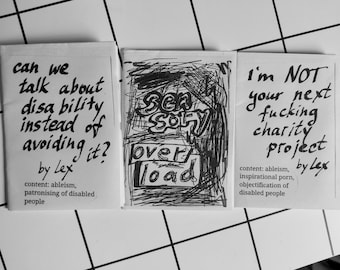 can we
talk about
disability
instead of
avoiding
it?
by Lex
content: ableism,
patronising of disabled
people
sen
sory
over
load
i'm NOT
your next
fucking
charity
project
by Lex
content: ableism,
inspirational porn,
objectification of
disabled people